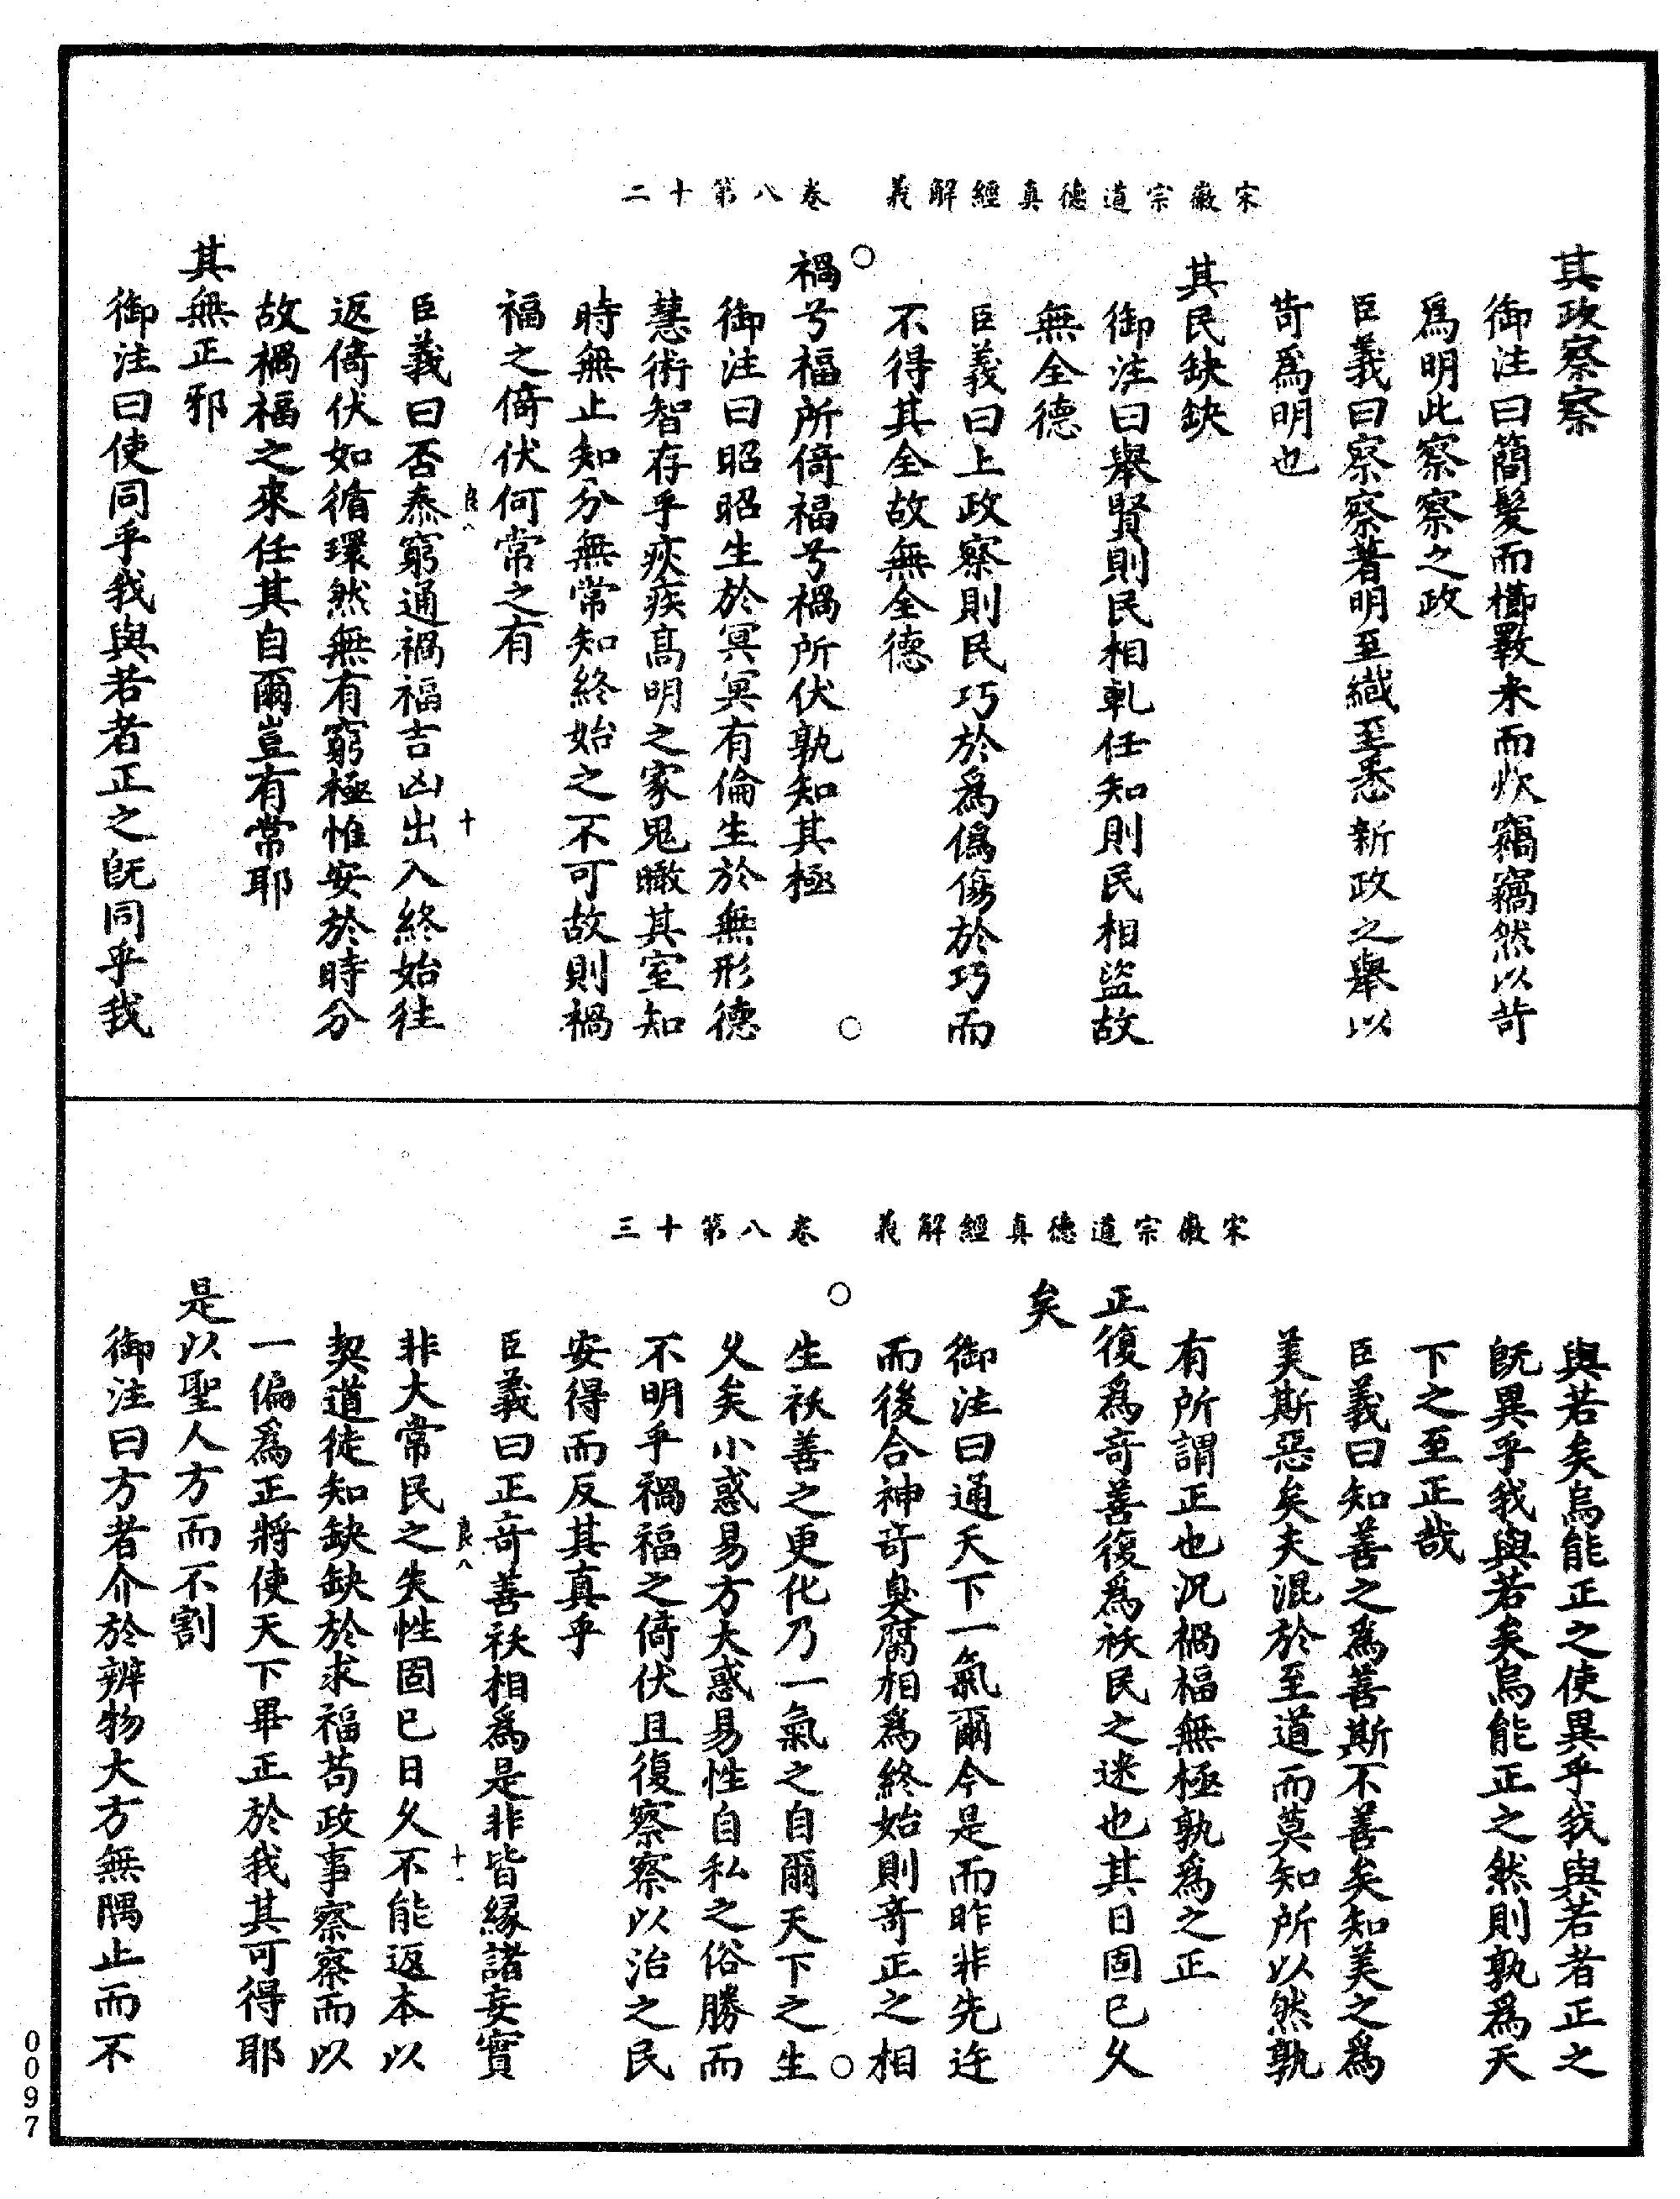 宋徽宗道德真經解義　卷八第十二
其政察察
御注曰簡髮而櫛數米而炊竊竊然以苛
爲明此察察之政
臣義曰察察著明至纖至悉新政之舉以
苛爲明也
其民缺缺
御注曰舉賢則民相軋任知則民相盜故
無全德
臣義曰上政察則民巧於爲僞傷於巧而
不得其全故無全德
禍兮福所倚福兮禍所伏孰知其極
御注曰昭昭生於冥冥有倫生於無形德
慧術智存乎疢疾高明之家鬼瞰其室知
時無止知分無常知終始之不可故則禍
福之倚伏何常之有
臣義曰否泰窮通禍福吉凶出入終始往
良八
十
返倚伏如循環然無有窮極惟安於時分
故禍福之來任其自爾豈有常耶
其無正邪
御注曰使同乎我與若者正之旣同乎我
宋徽宗道德真經解義　卷八第十三
與若矣烏能正之使異乎我與若者正之
旣異乎我與若矣烏能正之然則孰爲天
下之至正哉
臣義曰知善之爲善斯不善矣知美之爲
美斯惡矣夫混於至道而莫知所以然孰
有所謂正也況禍福無極孰爲之正
正復爲奇善復爲祅民之迷也其日固已久
矣
御注曰通天下一氣爾今是而昨非先迕
而後合神奇臭腐相爲終始則奇正之相
生祅善之更化乃一氣之自爾天下之生
久矣小惑易方大惑易性自私之俗勝而
不明乎禍福之倚伏且復察察以治之民
安得而反其真乎
臣義曰正奇善祅相爲是非皆緣諸妄實
非大常民之失性固已日久不能返本以
良八
十一
契道徒知缺缺於求福苟政事察察而以
一偏爲正將使天下畢正於我其可得耶
是以聖人方而不割
御注曰方者介於辨物大方無隅止而不
0097